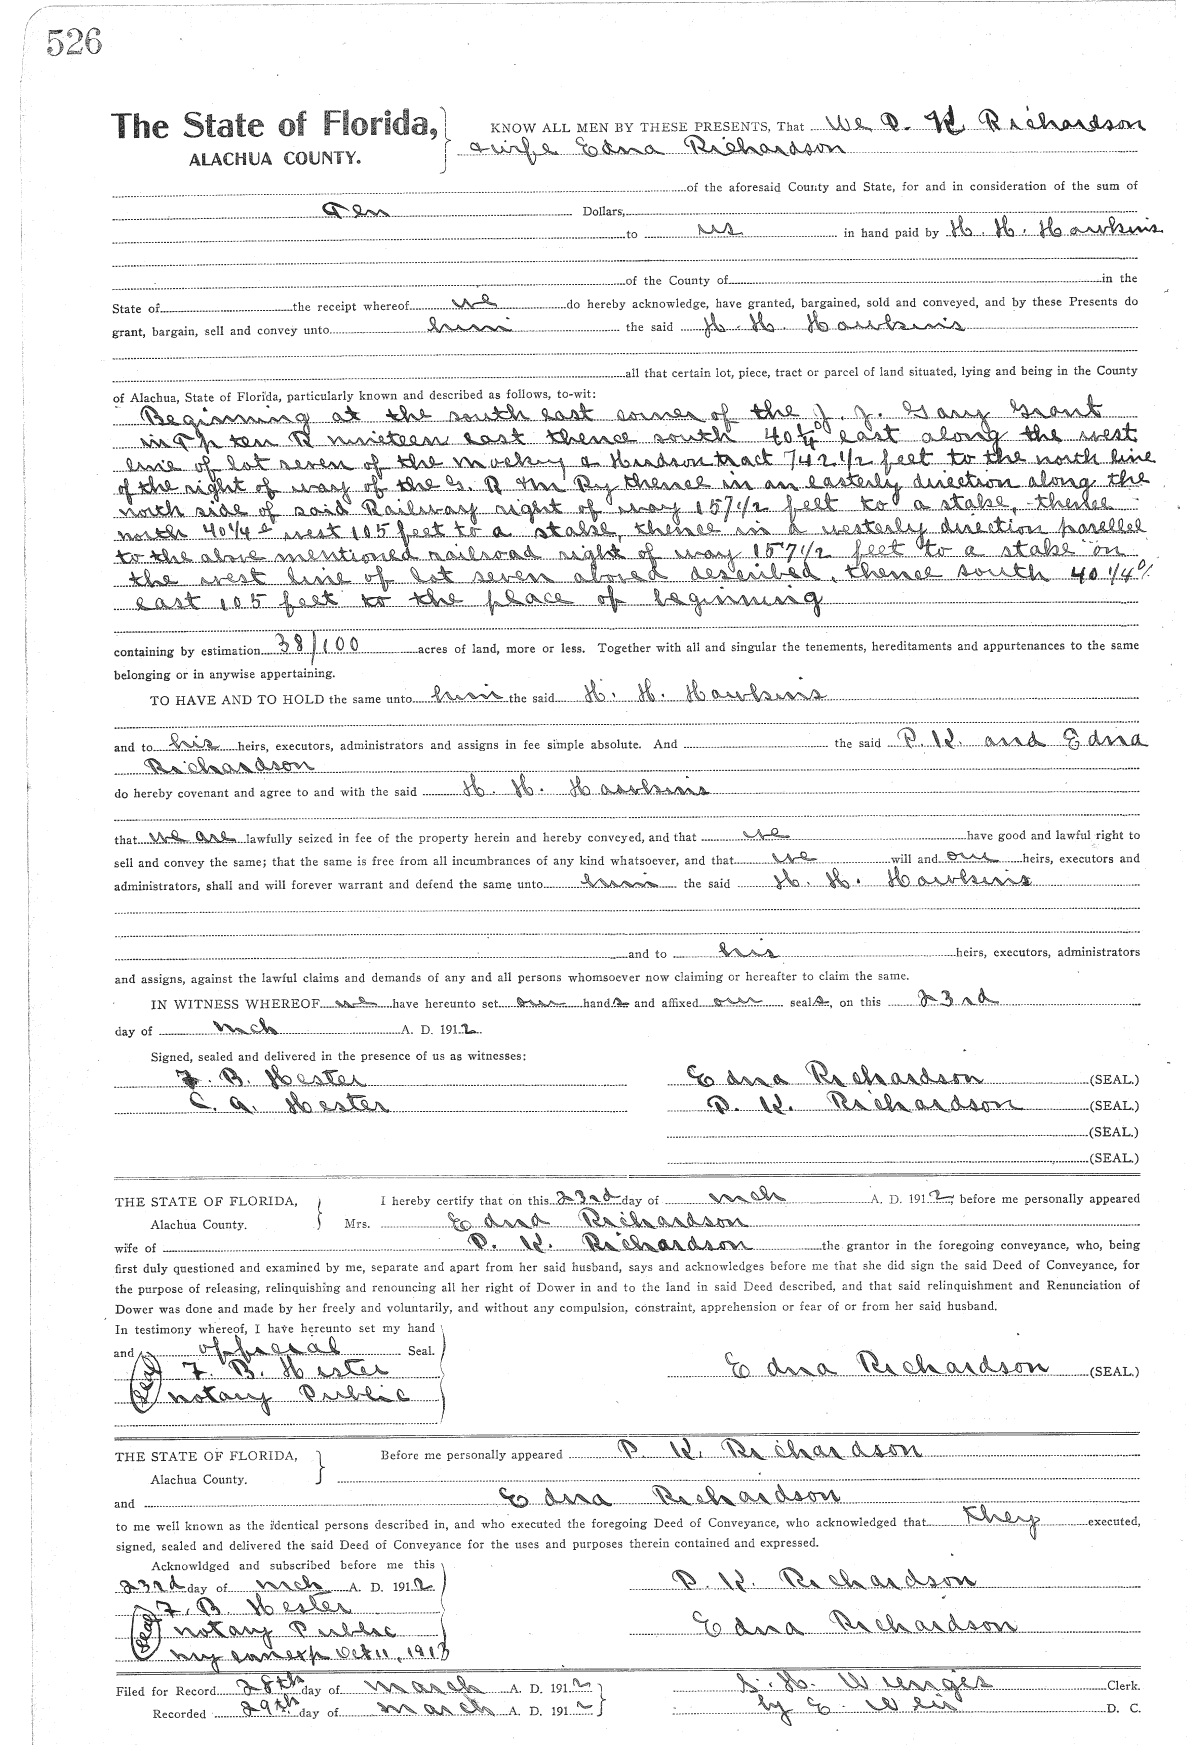 526
The State of Florida, KNOW ALL MEN BY THESE PRESENTS, That We P. K Richardson
ALACHUA COUNTY. & wife Edna Richardson
of the aforesaid County and State, for and in consideration of the sum of
Ten Dollars,
to us in hand paid by H. H. Hawkins
of the County of in the
State of the receipt whereof we do hereby acknowledge, have granted, bargained, sold and conveyed, and by these Presents do
grant, bargain, sell and convey unto him the said H. H. Hawkins
all that certain lot, piece, tract or parcel of land situated, lying and being in the County
of Alachua, State of Florida, particularly known and described as follows, to-wit:
Beginning at the south east corner of the J. J. Gary Grant
in Tp ten R nineteen east thence south 40¼° east along the west
line of lot seven of the & Hudson tract 742 1/2 feet to the north line
of the right of way of the G. R Ry thence in an easterly direction along the
north side of said Railway right of way 157 1/2 feet to a stake, thence
north 40 1/4 west 105 feet to a stake, thence in a westerly direction parellel
to the above mentioned railroad right of way 157 1/2 feet to a stake on
the west line of lot seven above described, thence south 40 1/4°
east 105 feet to the place of beginning
containing by estimation 38/100 acres of land, more or less. Together with all and singular the tenements, hereditaments and appurtenances to the same
belonging or in anywise appertaining.
TO HAVE AND TO HOLD the same unto him the said H. H. Hawkins
and to his heirs, executors, administrators and assigns in fee simple absolute. And the said P. K. and Edna
Richardson
do hereby covenant and agree to and with the said H. H. Hawkins
that we are lawfully seized in fee of the property herein and hereby conveyed, and that we have good and lawful right to
sell and convey the same; that the same is free from all incumbrances of any kind whatsoever, and that we will and our heirs, executors and
administrators, shall and will forever warrant and defend the same unto him the said H. H. Hawkins
and to his heirs, executors, administrators
and assigns, against the lawful claims and demands of any and all persons whomsoever now claiming or hereafter to claim the same.
IN WITNESS WHEREOF we have hereunto set our hands and affixed our seals, on this 23rd
day of Mch A. D. 1912.
Signed, sealed and delivered in the presence of us as witnesses:
F. B. Hester Edna Richardson (SEAL.)
C. A. Hester P. K. Richardson (SEAL.)
(SEAL.)
(SEAL.)
THE STATE OF FLORIDA, I hereby certify that on this 23rd day of Mch A. D. 1912, before me personally appeared
Alachua County. Mrs. Edna Richardson
wife of P. K. Richardson the grantor in the foregoing conveyance, who, being
first duly questioned and examined by me, separate and apart from her said husband, says and acknowledges before me that she did sign the said Deed of Conveyance, for
the purpose of releasing, relinquishing and renouncing all her right of Dower in and to the land in said Deed described, and that said relinquishment and Renunciation of
Dower was done and made by her freely and voluntarily, and without any compulsion, constraint, apprehension or fear of or from her said husband.
In testimony whereof, I have hereunto set my hand
and official Seal.
Seal F. B. Hester Edna Richardson (SEAL.)
Notary Public
THE STATE OF FLORIDA, Before me personally appeared P. K. Richardson
Alachua County.
and Edna Richardson
to me well known as the identical persons described in, and who executed the foregoing Deed of Conveyance, who acknowledged that they executed,
signed, sealed and delivered the said Deed of Conveyance for the uses and purposes therein contained and expressed.
Acknowldged and subscribed before me this
23rd day of Mch A. D. 1912 P. K. Richardson
F. B. Hester
Seal Notary Public Edna Richardson
My com exp Oct 11, 1913
Filed for Record 28th day of March A. D. 1912 S. H. Wienges Clerk.
Recorded 29th day of March A. D. 1912 by E. Weir D. C.